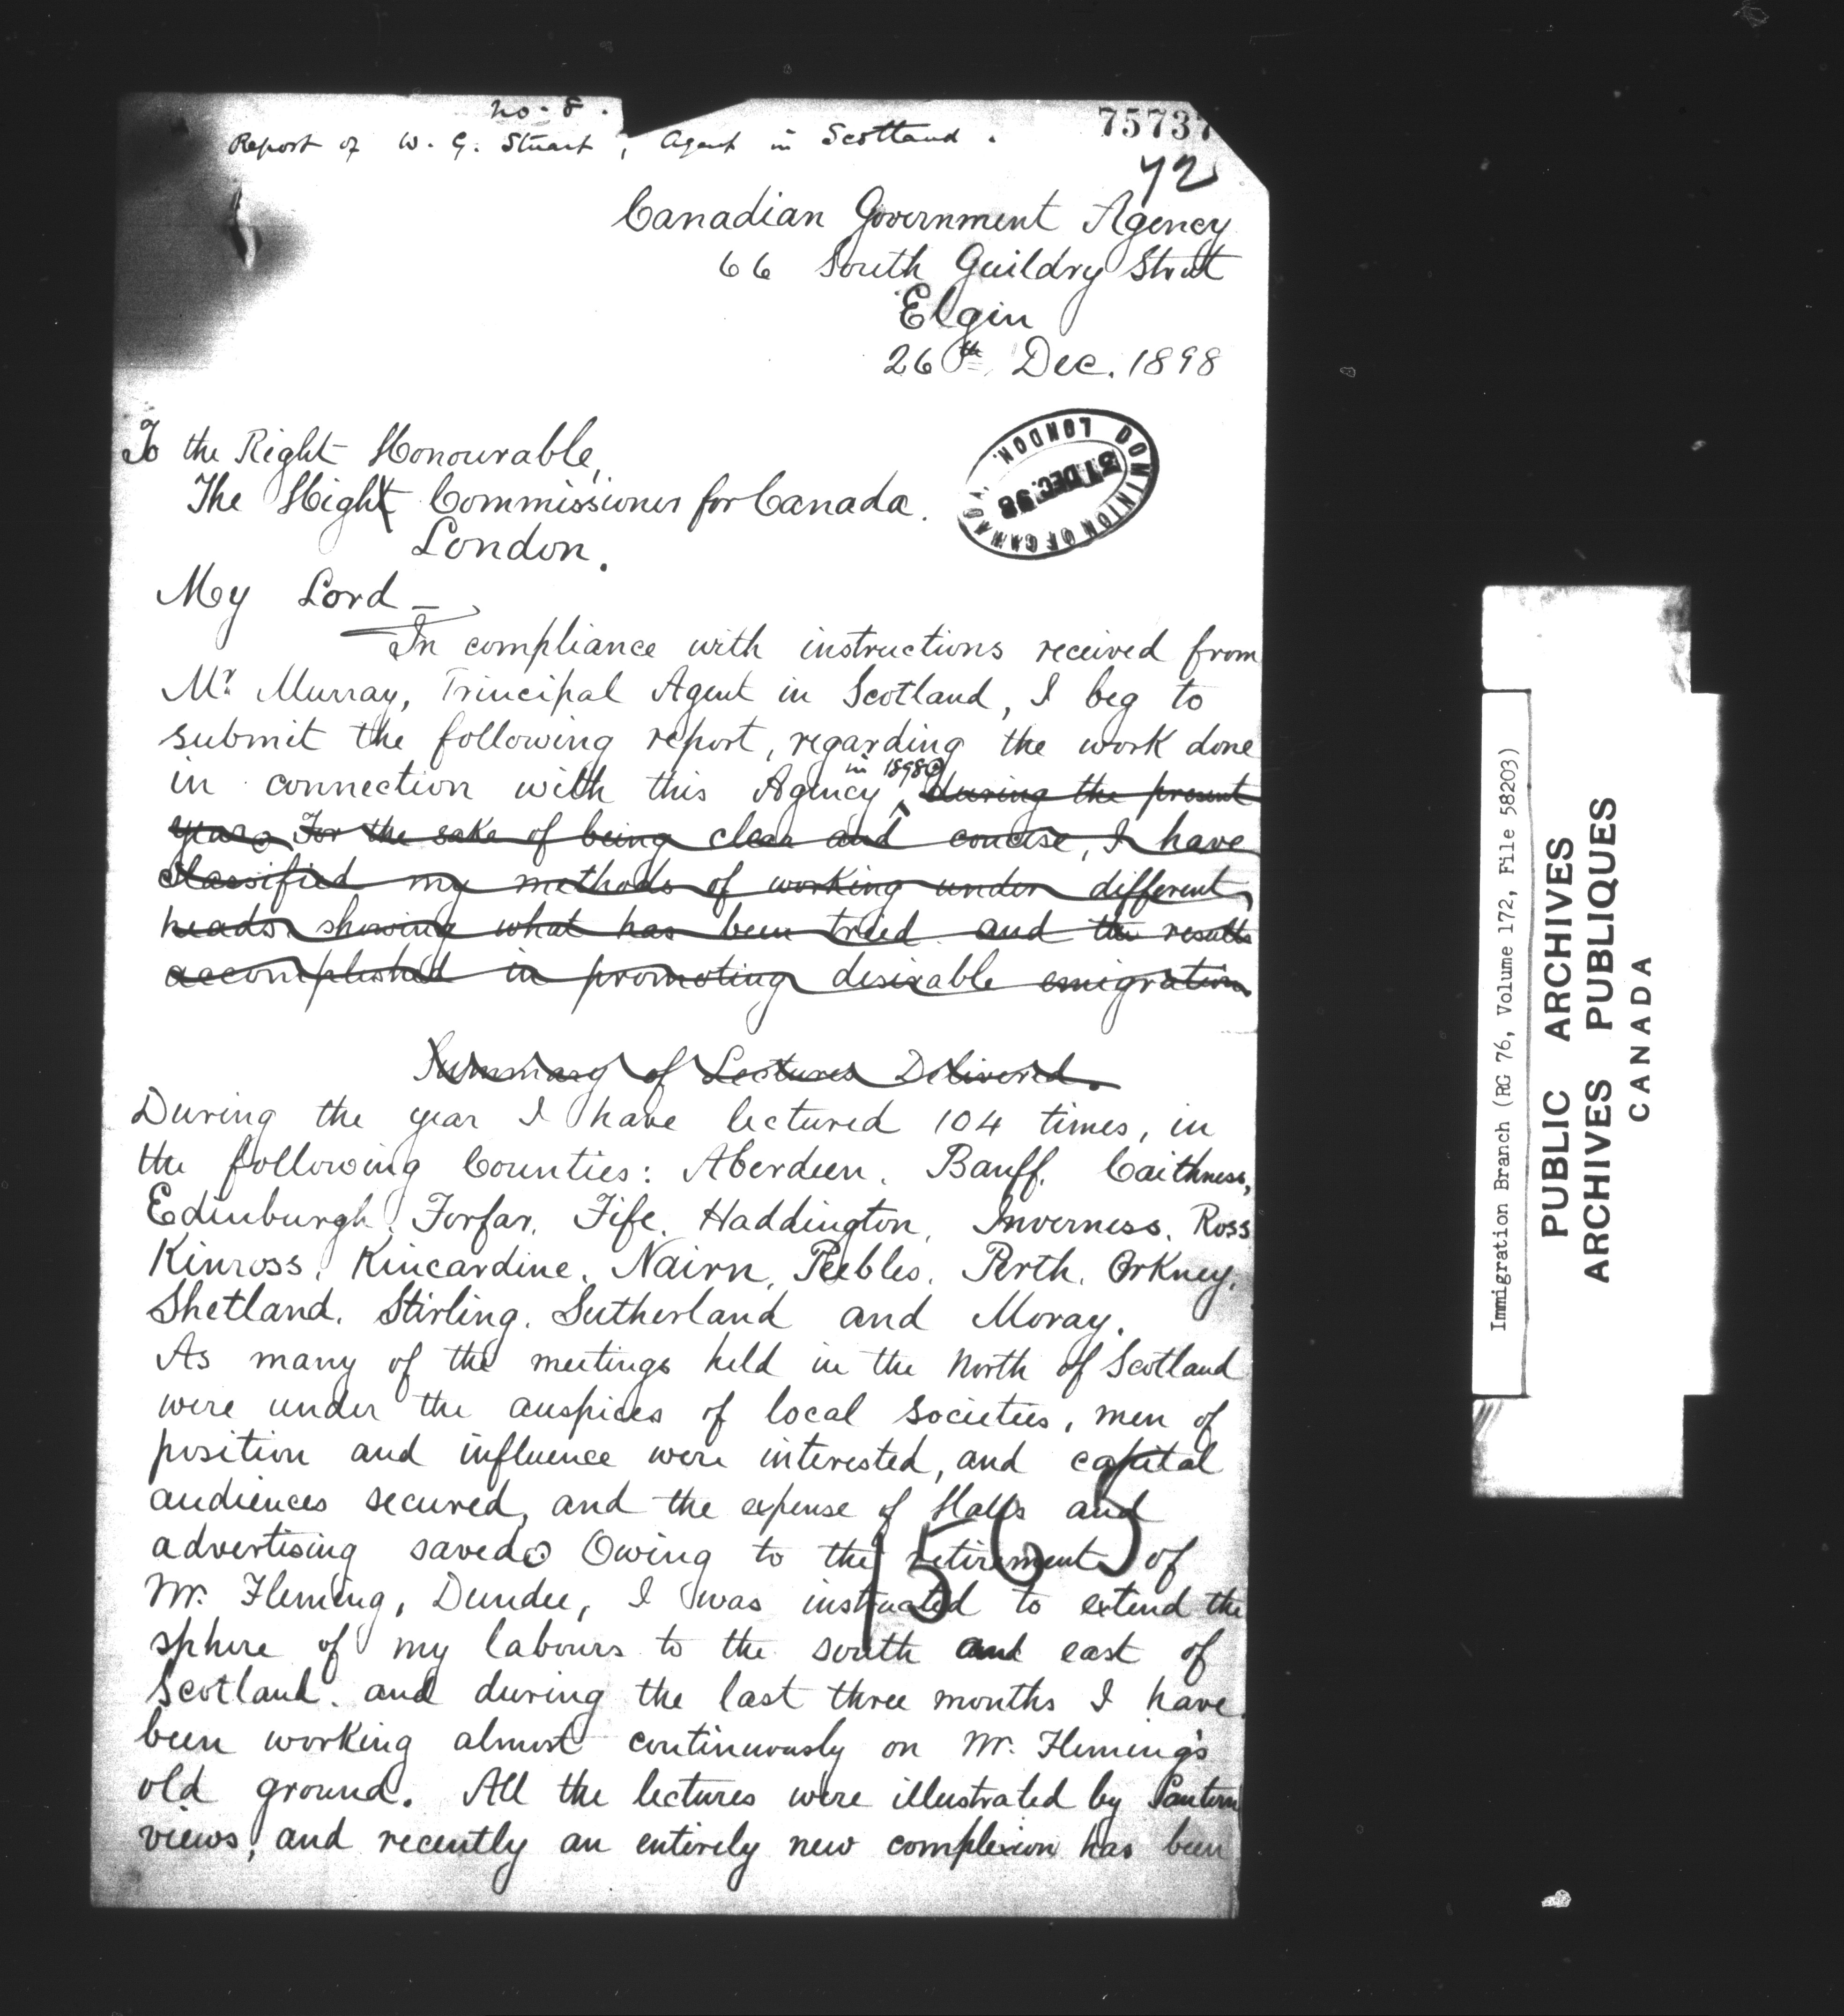 no. 8.
Report of W. G. Stuart, Agent in Scotland.
75737
72
Canadian Government Agency
66 South Guildry Street
Elgin
26th Dec. 1898
DOMINION OF CANADA. LONDON.
31 DEC. 98
To the Right Honourable,
The High Commissioner for Canada.
London.
My Lord —
In compliance with instructions received from
Mr. Murray, Principal Agent in Scotland, I beg to
submit the following report, regarding the work done
in 1898
in connection with this Agency during the present
year. For the sake of being clear and concise, I have
classified my methods of working under different
heads showing what has been tried and the results
accomplished in promoting desirable emigration
Summary of Lectures Delivered.
During the year I have lectured 104 times, in
the following Counties: Aberdeen. Banff. Caithness,
Edinburgh. Forfar. Fife. Haddington, Inverness. Ross
Kinross. Kincardine. Nairn, Peebles. Perth. Orkney.
Shetland. Stirling. Sutherland and Moray.
As many of the meetings held in the North of Scotland
were under the auspices of local Societies, men of
position and influence were interested, and capital
audiences secured, and the expense of Halls and
advertising saved. Owing to the retirement of
Mr. Fleming, Dundee, I was instructed to extend the
sphere of my labours to the south and east of
Scotland. and during the last three months I have
been working almost continuously on Mr. Fleming's
old ground. All the lectures were illustrated by Lantern
views, and recently an entirely new complexion has been
Immigration Branch (RG 76, Volume 172, File 58203)
PUBLIC ARCHIVES
ARCHIVES PUBLIQUES
CANADA